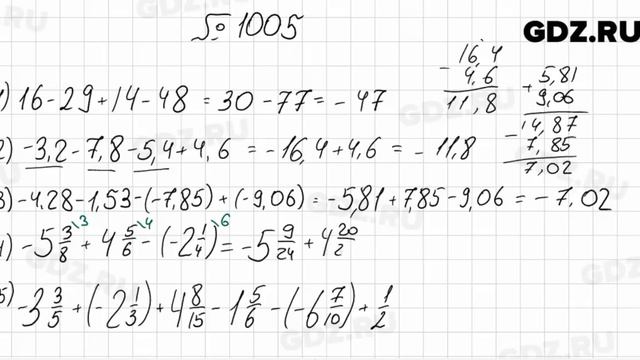 № 1005
GDZ.RU
16,4
- 4,6
11,8
+ 5,81
9,06
- 14,87
7,85
7,02
1) 16 - 29 + 14 - 48 = 30 - 77 = - 47
2) -3,2 - 7,8 - 5,4 + 4,6 = -16,4 + 4,6 = - 11,8
3) -4,28 - 1,53 - (-7,85) + (-9,06) = -5,81 + 7,85 - 9,06 = -7,02
4) -5 3/8 \3 + 4 5/6 \4 - (-2 1/4) \6 = -5 9/24 + 4 20/2
5) -3 3/5 + (-2 1/3) + 4 8/15 - 1 5/6 - (-6 7/10) + 1/2